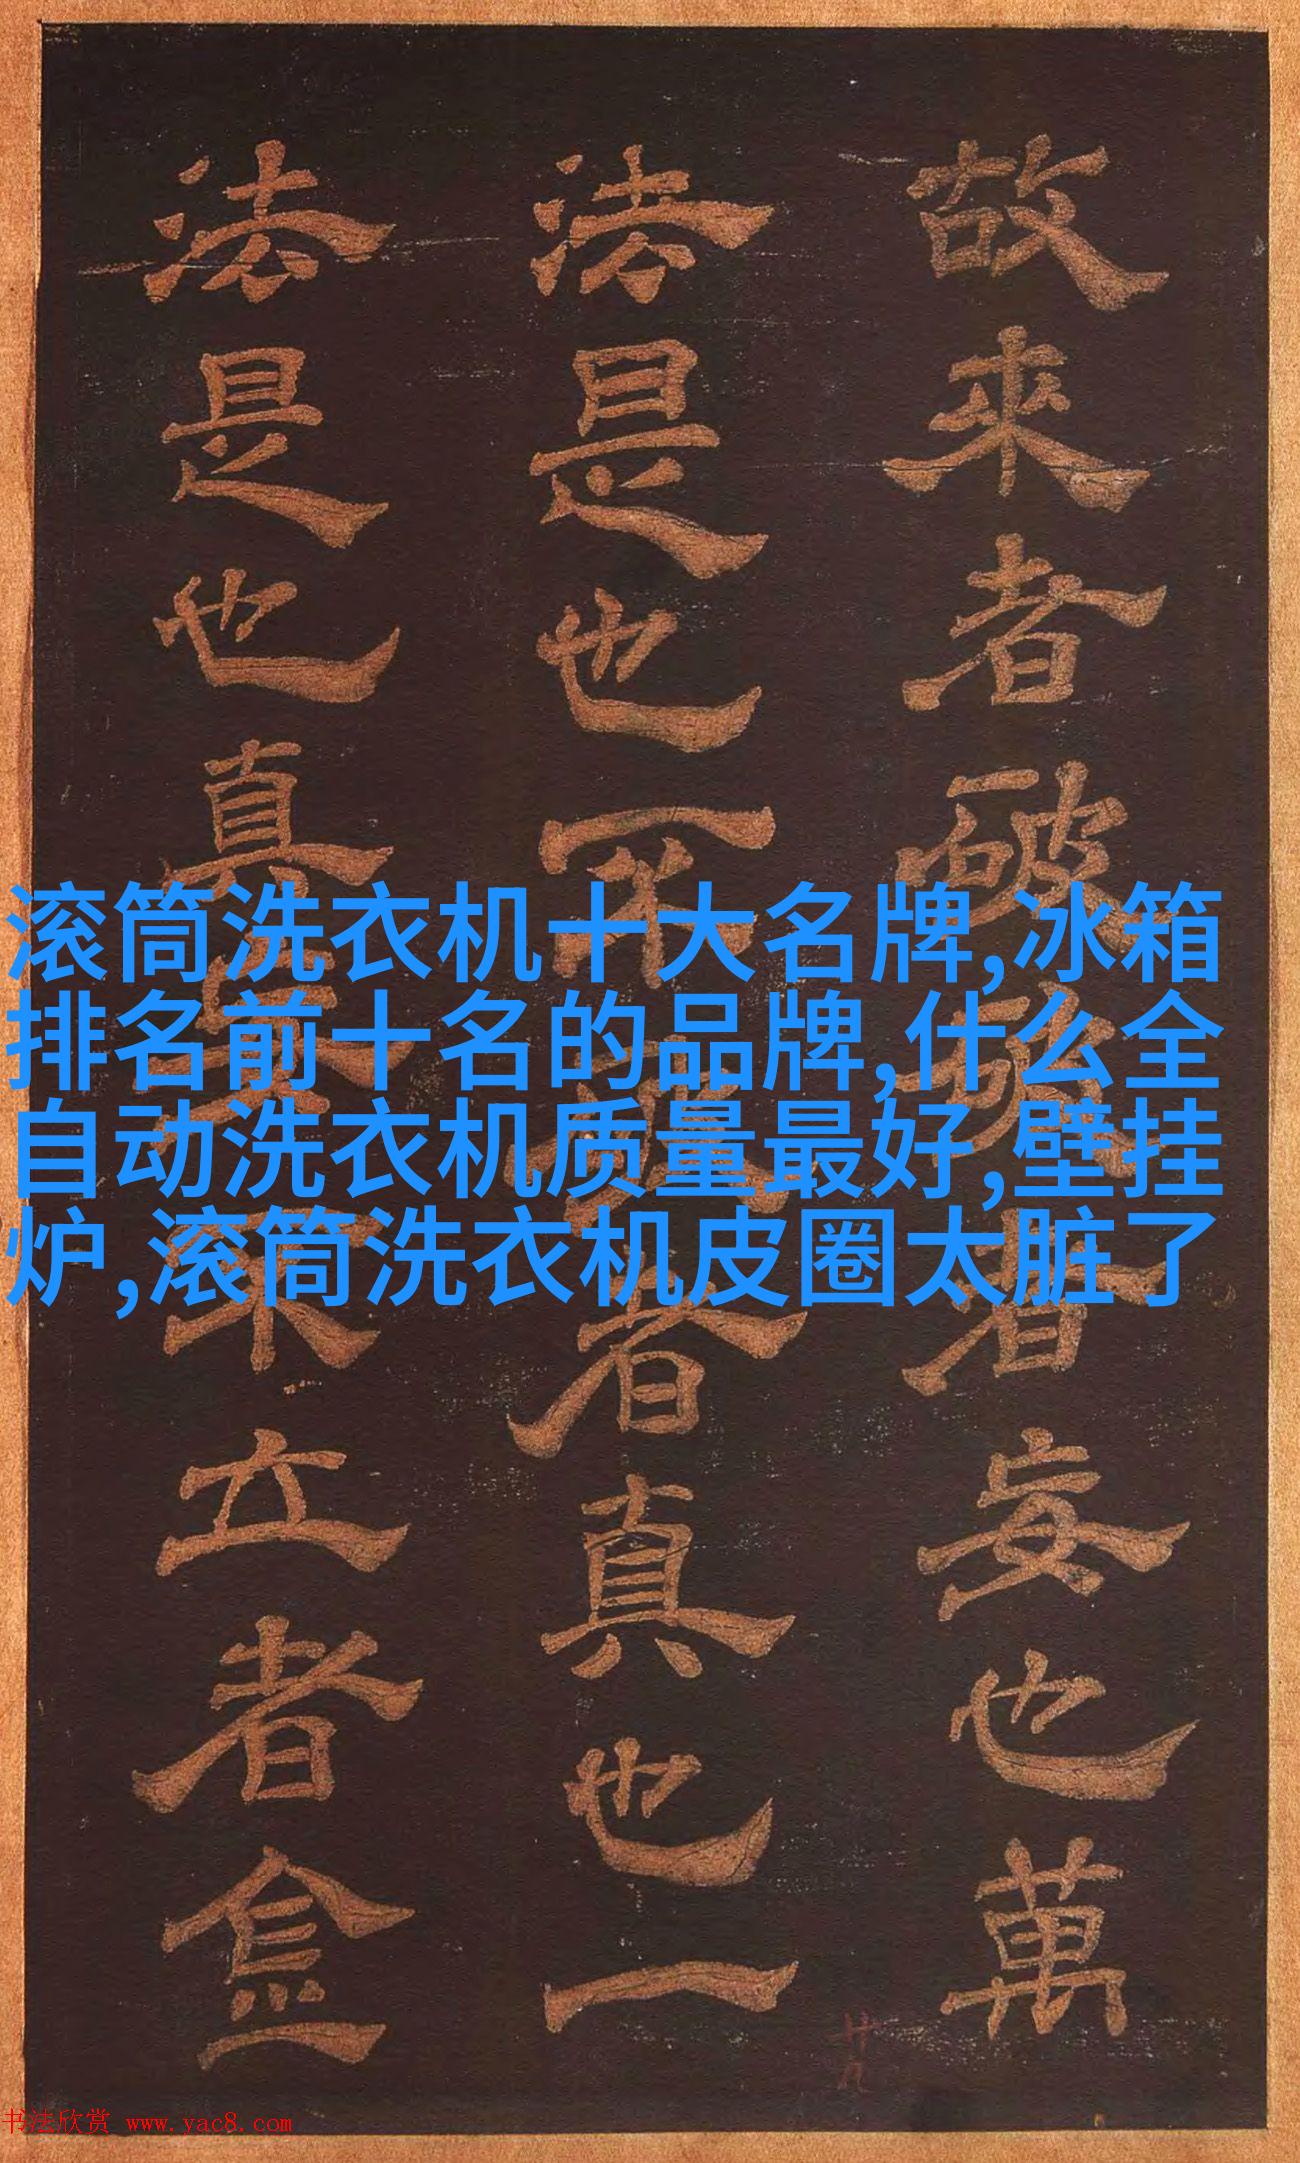 滚筒洗衣机十大名牌,冰箱
排名前十名的品牌,什么全
自动洗衣机质量最好,壁挂
炉,滚筒洗衣机皮圈太脏了
故來者者妄也萬
法是也不者真也一
法是也真不立者
廿九
书法欣赏 www.yac8.com